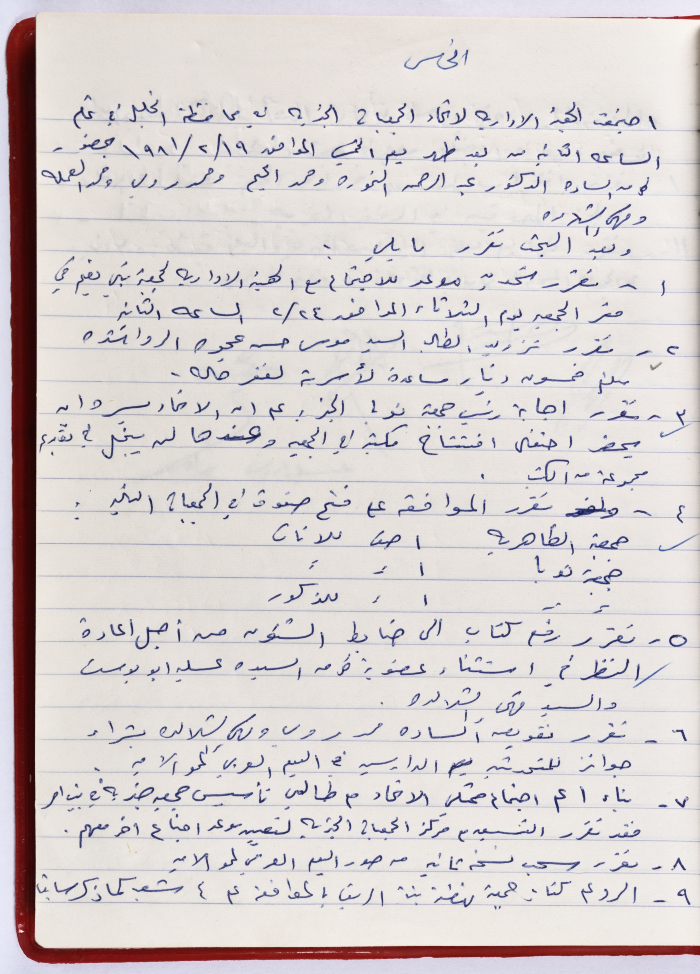 الخامس
اجتمعت الهيئة الادارية لاتحاد الجمعيات الخيرية في محافظة الخليل في تمام
الساعة الثانية من بعد ظهر يوم الخميس الموافق ١٩/٢/١٩٨١ بحضور
كل من السادة الدكتور عبد الرحمن ومحمد ومحمد ومحمد
وبعد البحث تقرر ما يلي :
١ - تقرر تحديد موعد للاجتماع مع الهيئة الادارية لجمعية بني نعيم في
مقر الجمعية يوم الثلاثاء الموافق ٢/٢٤ الساعة الثانية
٢ - تقرر تزويد الطالب السيد موسى حسن الرواشده
مبلغ خمسون دينار مساعدة لأسرته لفقر حاله .
٣ - تقرر اجابة رئيس جمعية نوبا الخيرية ان الاتحاد يسره ان
يحضر احتفال افتتاح مكتبة في الجمعية وعندها لن يبخل في تقديم
مجموعة من الكتب .
٤ - تقرر الموافقة على فتح صفوف في الجمعيات التالية :
جمعية الظاهرية ١ صف للاناث
جمعية نوبا ١ = =
= = ١ = للذكور
٥ - تقرر رفع كتاب الى ضابط الشئون من أجل اعادة
النظر في استثناء عضوية كل من السيدة ابو يوسف
والسيد
٦ - تقرر تفويض السادة محمد بشراء
جوائز في اليوم العربي لمحو الامية .
٧ - بناءا على اجتماع ممثلي الاتحاد مع طالبي تأسيس جمعية خيرية في بيت امر
فقد تقرر مركز الجمعيات الخيرية لتعيين موعد اجتماع آخر معهم .
٨ - تقرر سحب نسخة ثانية من صور اليوم العربي لمحو الامية
٩ - الرد على كتاب جمعية نهضة بنت الريف بالموافقة على ٤ شعب كما ذكر سابقا